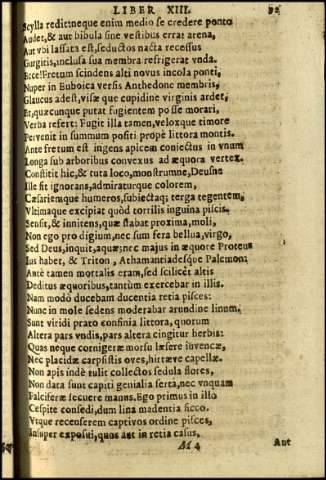 LIBER XIII.
Scylla redit: neque enim medio se credere ponto
Audet, & aut bibula sine vestibus errat arena,
Aut vbi lassata est, seductos nacta recessus
Gurgitis, inclusa sua membra refrigerat vnda.
Ecce! Fretum scindens alti novus incola ponti,
Nuper in Euboica versis Anthedone membris,
Glaucus adest, visæ que cupidine virginis ardet,
Et, quæcunque putat fugientem posse morari,
Verba refert: Fugit illa tamen, veloxque timore
Pervenit in summum positi propè littora montis.
Ante fretum est ingens apicem coniectus in vnum
Longa sub arboribus convexus ad æquora vertex.
Constitit hîc, & tuta loco, monstrumne, Deusne
Ille sit ignorans, admiraturque colorem,
Cæsariemque humeros, subiectaq; terga tegentem,
Vltimaque excipiat quòd tortilis inguina piscis.
Sensit, & innitens, quæ stabat proxima, moli,
Non ego prodigium, nec sum fera bellua, virgo,
Sed Deus, inquit, aquæ; nec majus in æquore Proteus
Ius habet, & Triton, Athamantiadesque Palemon:
Ante tamen mortalis eram, sed scilicet altis
Deditus æquoribus, tantùm exercebar in illis.
Nam modò ducebam ducentia retia pisces:
Nunc in mole sedens moderabar arundine linum.
Sunt viridi prato confinia littora, quorum
Altera pars vndis, pars altera cingitur herbis:
Quas neque cornigeræ morsu læsere iuvencæ,
Nec placidæ carpsistis oves, hirtæve capellæ.
Non apis indè tulit collectos sedula flores,
Non data sunt capiti genialia serta, nec vnquam
Falciferæ secuere manus. Ego primus in illo
Cespite consedi, dum lina madentia sicco.
Vtque recenserem captivos ordine pisces,
Insuper exposui, quos aut in retia casus,
M 4
Aut